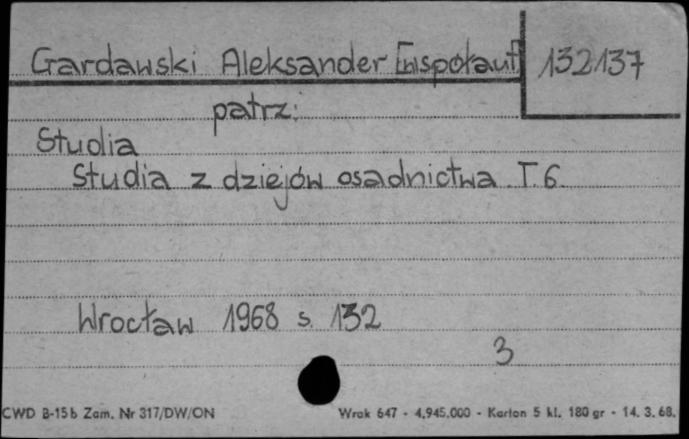 Gardawski Aleksander [współaut] 132137
patrz:
Studia
Studia z dziejów osadnictwa. T. 6.
Wrocław 1968 s. 132
3
CWD B-15b Zam. Nr 317/DW/ON Wrak 647 - 4,945,000 - Karton 5 kl. 180 gr - 14. 3. 68.